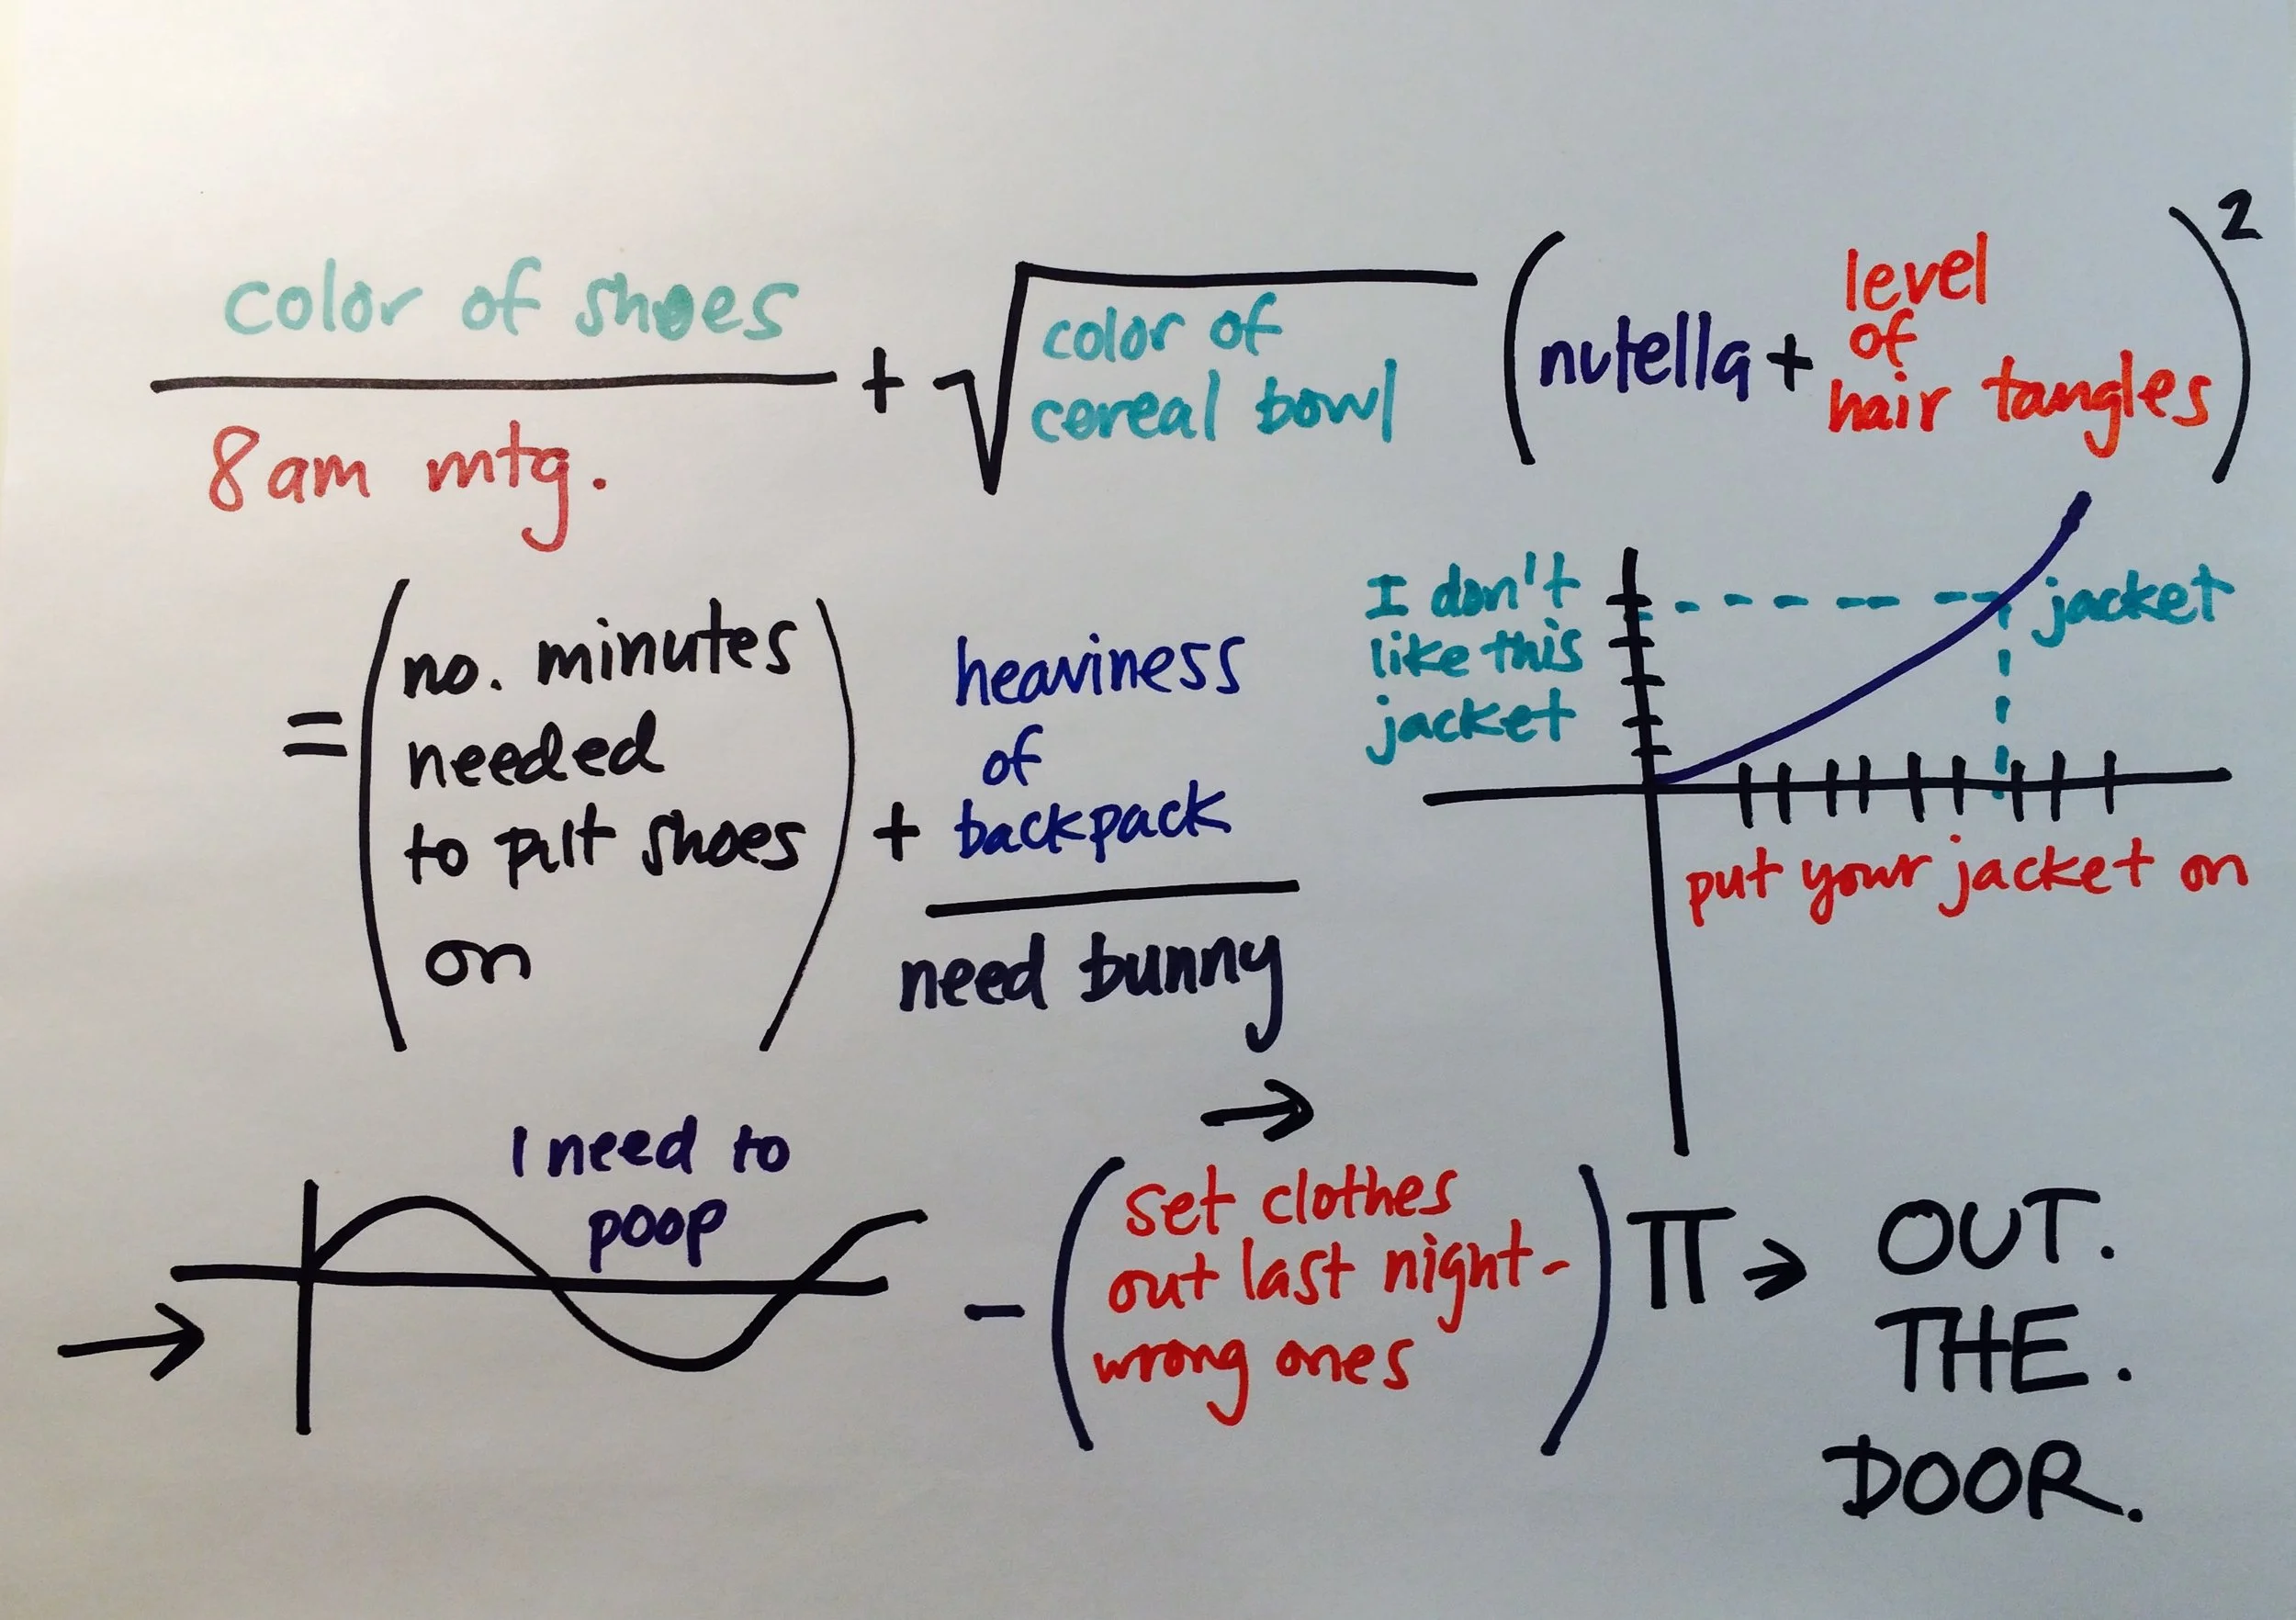 color of shoes
8am mtg.
+
√
color of
cereal bowl
(nutella +
level
of
hair tangles)²
=
(no. minutes
needed
to put shoes
on)
+
heaviness
of
backpack
need bunny
I don't
like this
jacket
jacket
put your jacket on
→
→
I need to
poop
-
(set clothes
out last night-
wrong ones)
π →
OUT.
THE.
DOOR.